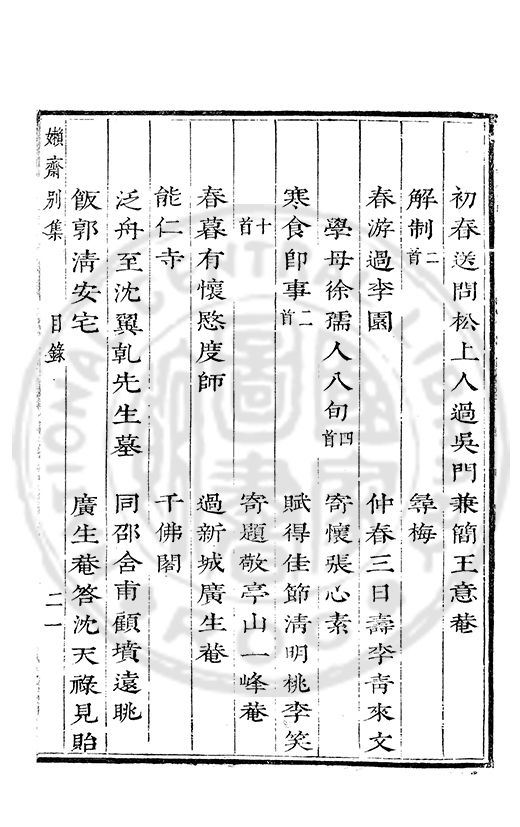 初春送問松上人過吳門兼簡王意菴
解制二首　尋梅
春游過李園　仲春三日壽李靑來文
學母徐孺人八旬四首　寄懷張心素
寒食卽事二首　賦得佳節淸明桃李笑
十首　寄題敬亭山一峰菴
春暮有懷愍度師　過新城廣生菴
能仁寺　千佛閣
泛舟至沈翼乹先生墓　同邵舍甫顧墳遠眺
飯郭淸安宅　廣生菴答沈天祿見貽
嬾齋别集　目錄　二一